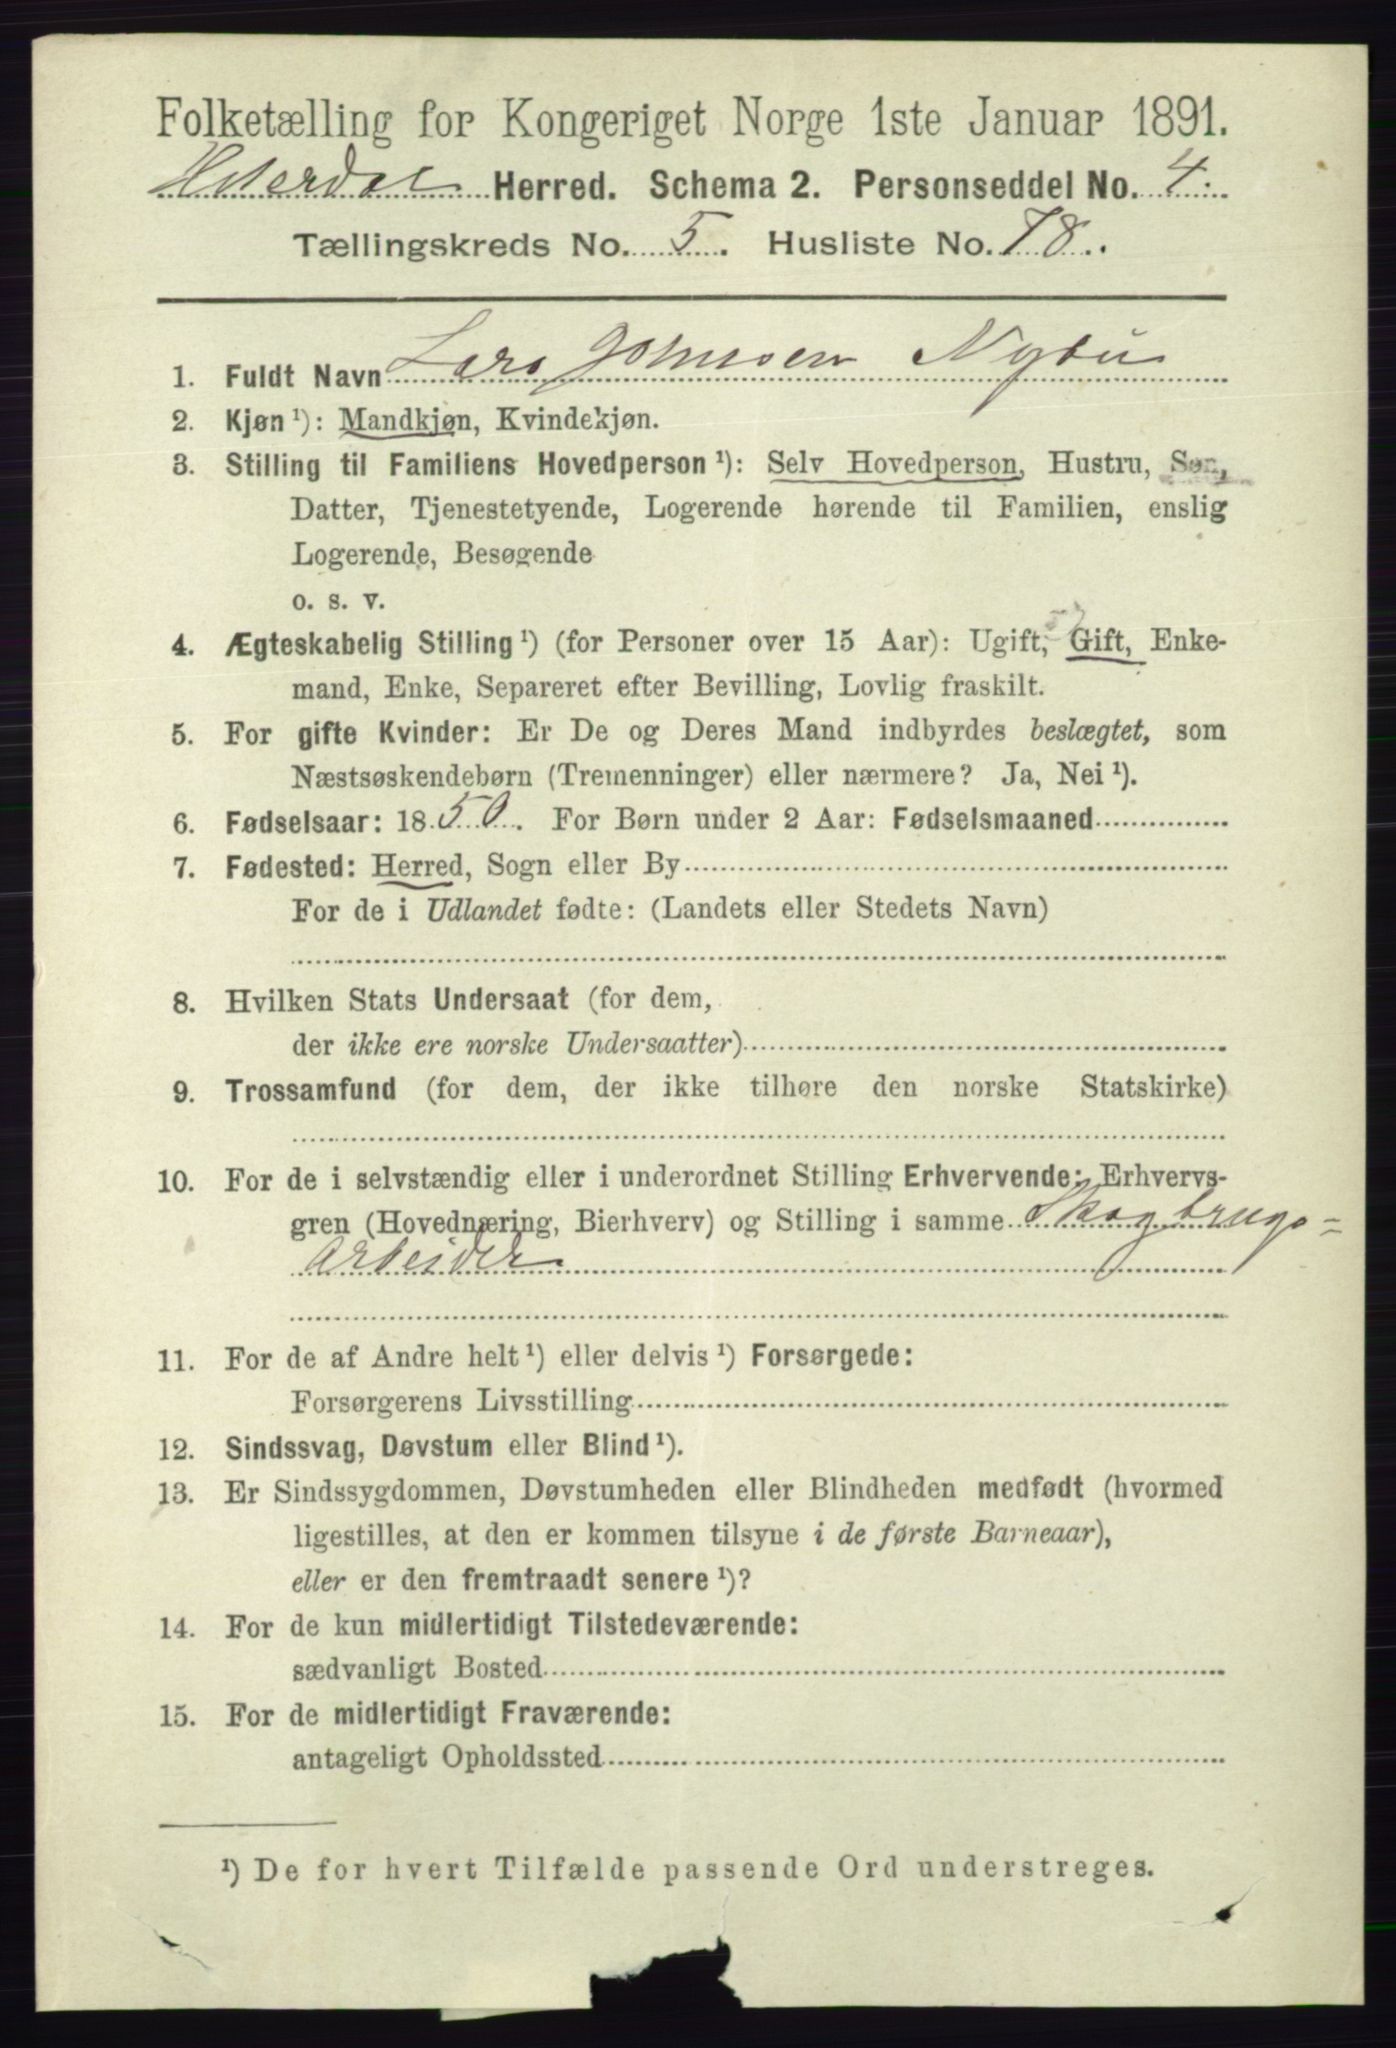 Folketælling for Kongeriget Norge 1ste Januar 1891.
Hiterdal Herred. Schema 2. Personseddel No. 4.
Tællingskreds No. 5. Husliste No. 78.
1. Fuldt Navn Lars Johnsen Nybu
2. Kjøn ¹): Mandkjøn, Kvindekjøn.
3. Stilling til Familiens Hovedperson ¹): Selv Hovedperson, Hustru, Søn,
Datter, Tjenestetyende, Logerende hørende til Familien, enslig
Logerende, Besøgende
o. s. v.
4. Ægteskabelig Stilling ¹) (for Personer over 15 Aar): Ugift, Gift, Enke-
mand, Enke, Separeret efter Bevilling, Lovlig fraskilt.
5. For gifte Kvinder: Er De og Deres Mand indbyrdes beslægtet, som
Næstsøskendebørn (Tremenninger) eller nærmere? Ja, Nei ¹).
6. Fødselsaar: 1850. For Børn under 2 Aar: Fødselsmaaned
7. Fødested: Herred, Sogn eller By
For de i Udlandet fødte: (Landets eller Stedets Navn)
8. Hvilken Stats Undersaat (for dem,
der ikke ere norske Undersaatter)
9. Trossamfund (for dem, der ikke tilhøre den norske Statskirke)
10. For de i selvstændig eller i underordnet Stilling Erhvervende: Erhvervs-
gren (Hovednæring, Bierhverv) og Stilling i samme Skogbrugs=
arbeider
11. For de af Andre helt ¹) eller delvis ¹) Forsørgede:
Forsørgerens Livsstilling
12. Sindssvag, Døvstum eller Blind ¹).
13. Er Sindssygdommen, Døvstumheden eller Blindheden medfødt (hvormed
ligestilles, at den er kommen tilsyne i de første Barneaar),
eller er den fremtraadt senere ¹)?
14. For de kun midlertidigt Tilstedeværende:
sædvanligt Bosted
15. For de midlertidigt Fraværende:
antageligt Opholdssted
¹) De for hvert Tilfælde passende Ord understreges.